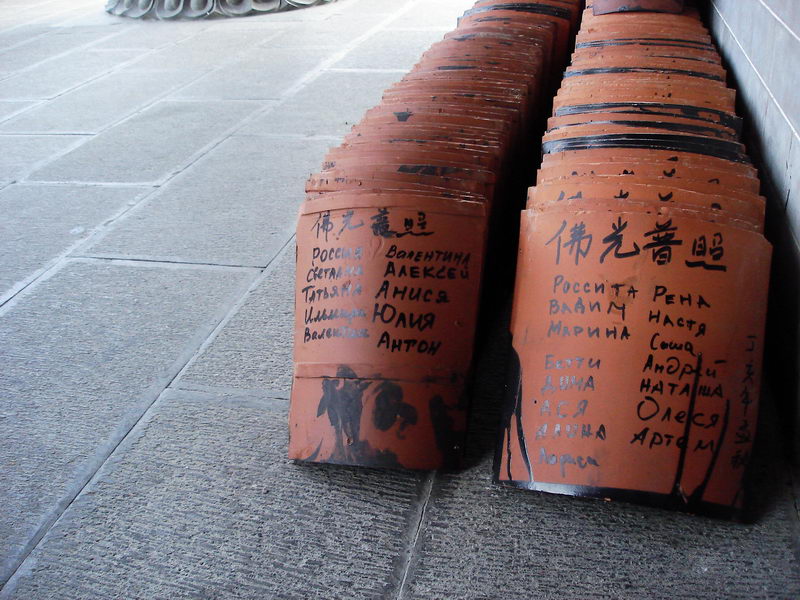 佛光普照
Россия Валентина
Светлана Алексей
Татьяна Анисия
Ильмира Юлия
Валентин Антон
佛光普照
Россита Рена
Вадим Настя
Марина Саша
Бетти Андрей
Дима Наташа
Ася Олеся
Алина Артем
Лариса
丁亥年